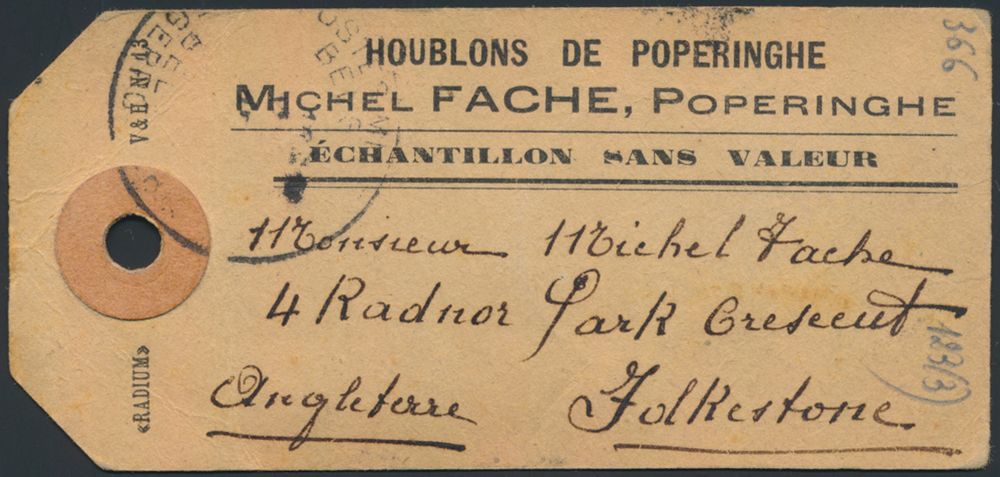 HOUBLONS DE POPERINGHE
MICHEL FACHE, POPERINGHE
ÉCHANTILLON SANS VALEUR
Monsieur Michel Fache
4 Radnor Park Crescent
Angleterre Folkestone
«RADIUM»
366